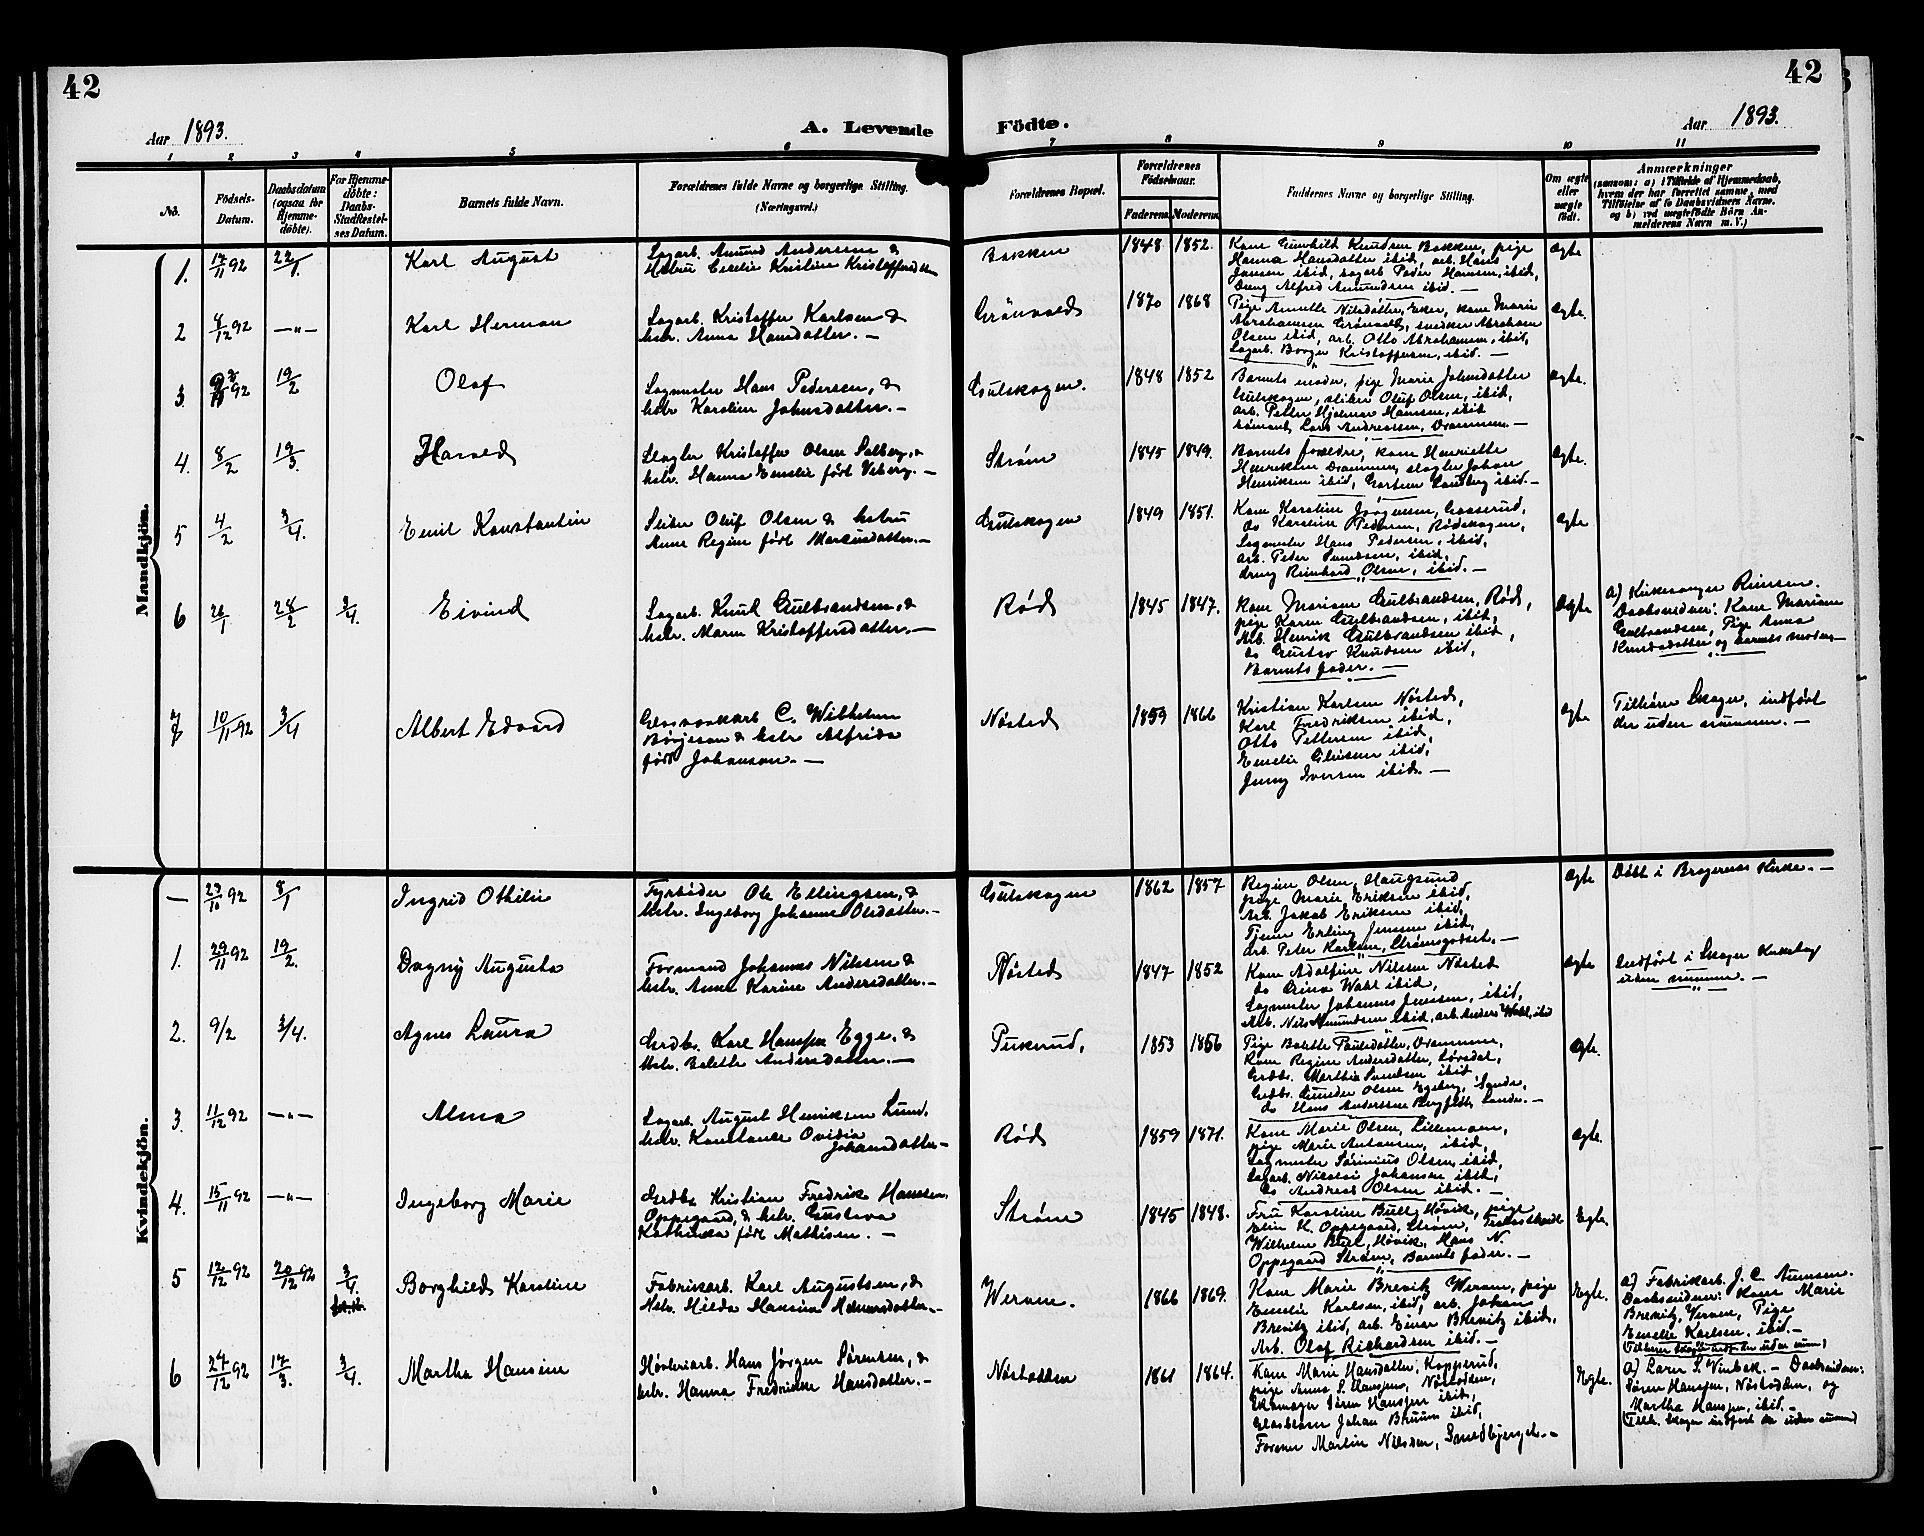 42
42
Aar 1893.
A. Levende
Födte.
Aar 1893.
1 2 3 4 5 6 7 8 9 10 11
No.
Födsels-
Datum.
Daabsdatum
(ogsaa for
Hjemme-
døbte).
For Hjemme-
døbte:
Daabs-
Stadfæstel-
ses Datum.
Barnets fulde Navn.
Forældrenes fulde Navne og borgerlige Stilling.
(Næringsvei.)
Forældrenes Bopæl.
Forældrenes
Fødselsaar.
Faderens.
Moderens.
Faddernes Navne og borgerlige Stilling.
Om ægte
eller
uægte
født.
Anmærkninger
(saasom: a) i Tilfælde af Hjemmedaab,
hvem der har forrettet samme, med
Tilföielse af to Daabsvidners Navne.
og b) ved uægtefödte Börn An-
melderens Navn m. V.)
Mandkjön.
1. 17/11 92 22/1 Karl August
Sagarb. Amund Andersen &
Hstru Emelie Kristine Kristoffersdtr
Bakken 1848 1852.
Kone Gunhild Knudsen Bakken, pige
Hanna Hansdatter ibid, arb. Hans
Jansen ibid, sagarb Peder Hansen, ibid,
Dreng Alfred Amundsen ibid. —
Ægte
2 4/12 92 —"— Karl Herman
Sagarb. Kristoffer Karlsen &
hstr. Anna Hansdatter. —
Grönvold 1870 1868
Pige Annette Nilsdatter, Eker, kone Marie
Abrahamsen Grönvold, snedker Abraham
Olsen ibid, arb. Otto Abrahamsen, ibid,
Sagarb. Borger Kristoffersen, ibid. —
Ægte.
3. 92 19/2 Olaf
Sagmester Hans Pedersen, &
hstr Karoline Johnsdatter. —
Gulskogen. 1848 1852
Barnets moder, pige Marie Johnsdatter
Gulskogen, sliber Oluf Olsen, ibid,
arb. Petter Hjelmar Hansen, ibid
sömand, Lars Andreassen, Drammen. —
Ægte.
4. 8/2 19/3. Harald
Slagter Kristoffer Olsen Solberg, &
hstr. Hanna Emelie født Viberg. —
Strøm 1845 1849.
Barnets forældre, kone Henriette
Henriksen Drammen, slagter Johan
Henriksen ibid, Gartner Landberg ibid. —
Ægte.
5 4/2 3/4. Emil Konstantin
Sliber Oluf Olsen & hstru
Anne Regine født Markusdatter. —
Gulskogen 1849 1851.
Kone Karoline Jörgensen, Gosserud,
do Karoline Pedersen, Rødskogen,
Sagmester Hans Pedersen, ibid,
arb. Peder Svendsen, ibid,
dreng Reinhard Olsen, ibid. —
Ægte
6 26/1 28/2 3/4. Eivind
Sagarb. Knut Gulbrandsen, &
hstr. Maren Kristoffersdatter. —
Rød 1845 1847.
Kone Mariane Gulbrandsen, Rød,
pige Karen Gulbrandsen, ibid,
Arb. Henrik Gulbrandsen ibid,
do Gustav Knudsen ibid,
Barnets fader. —
Ægte
a) Kirkesanger Rimsen.
Daabsvidner: Kone Mariane
Gulbrandsen, Pige Anna
Knudsdatter og barnets moder. —
7 10/11 92 3/4 Albert Edvard
Glasværkarb C. Wilhelm
Börjeson & hstr Alfrida
født Johanson. —
Nøsted 1859 1866
Kristian Karlsen Nøsted,
Karl Fredriksen ibid,
Otto Pettersen ibid,
Emelie ibid,
Jenny Iversen ibid. —
Ægte
Tilhører Skoger, indført
der uden nummer. —
Kvindekjön.
— 23/10 92 8/1 Ingrid Othilie
Fyrbøder Ole Ellingsen, &
hstr. Ingeborg Johanne Olsdatter. —
Gulskogen 1862 1857
Regine Olsen, Haugsund
pige Marie Eriksen ibid,
Arb. Jakob Eriksen ibid,
Tjener Erling Jensen ibid,
arb. Peter Karlsen, Strømsgodset. —
Ægte
Døbt i Bragernes Kirke. —
1. 29/11 92 19/2. Dagny Augusta
Formand Johannes Nilssen &
hstr. Anne Karine Andersdatter. —
Nøsted 1847 1852
Kone Adolfine Nilssen Nøsted
do Wahl ibid,
Sagmester Johannes Jenssen, ibid,
Arb. Nils Amundsen ibid, arb. Anders Wahl, ibid
Ægte
Indført i Skoger Kirkebog
uden nummer. —
2. 9/2 3/4. Agnes Laura
Grdbr. Karl Hanssen Egge, &
Hstr. Bolette Andersdatter. —
Pukerud, 1853 1856
Pige Bolette Paulsdatter, Drammen,
Kone Regine Andersdatter, Sørsdal,
Grdbr. Marthia Svendsen ibid
Grdbr. Gunder Olsen Egeberg, Sande,
do Hans Anderssen Bergfeldt, Sande. —
Ægte.
3. 11/12 92 —"— Alma
Sagarb. August Henriksen Lund,
hstr. Konstance Ovidia
Johansdatter —
Rød 1859 1871.
Kone Marie Olsen, Lillemoen,
pige Marie Antonsen, ibid,
Sagmester Sörinius Olsen, ibid,
Sagarb. Nicolai Johansen ibid,
do Andreas Olsen ibid. —
Ægte.
4. 15/11 92 —"— Ingeborg Marie
Grdbr Kristian Fredrik Hanssen
Oppegaard, & hstr. Gustava
Kathinka født Mathisen. —
Strøm 1845 1848.
Fru Karoline Bull, Høvik, pige
Elin K. Oppegaard, Strøm,
Wilhelm Bull, Høvik, Hans N.
Oppegaard Strøm, Barnets fader. —
Ægte.
5 12/12 92 20/12 92 3/4. Borghild Karoline
Fabrikarb. Karl Augustsen, &
Hstr. Hilda Hansine —
Wernen. 1866 1869.
Kone Marie Brevitz Wernen, pige
Emelie Karlsen, ibid, arb. Johan
Brevitz ibid, arb. Einar Brevitz ibid,
Arb. Olaf Richardsen ibid. —
Ægte.
a) Fabrikarb. J. C. Amnsen.
Daabsvidner: Kone Marie
Brevitz, Wernen, Pige
Emelie Karlsen. ibid. —
6 24/12 92 17/3. 3/4. Martha Hansine
Høvleriarb. Hans Jørgen Sørensen, &
hstr. Hanna Fredrikke Hansdatter. —
Nøstodden 1861 1864.
Kone Marie Hansdatter, Kopperud,
pige Anna S. Hanssen, Nøstodden,
Søren Hanssen ibid,
Glasblæser Johan Bruun ibid,
Former Martin Nilssen, Smedbjerget. —
Ægte.
a) Lærer S. Vinbæk. — Daabsvidner:
Søren Hanssen, Nøstodden, og
Martha Hanssen, ibid. —
(Tilh. Skoger indført der uden num)